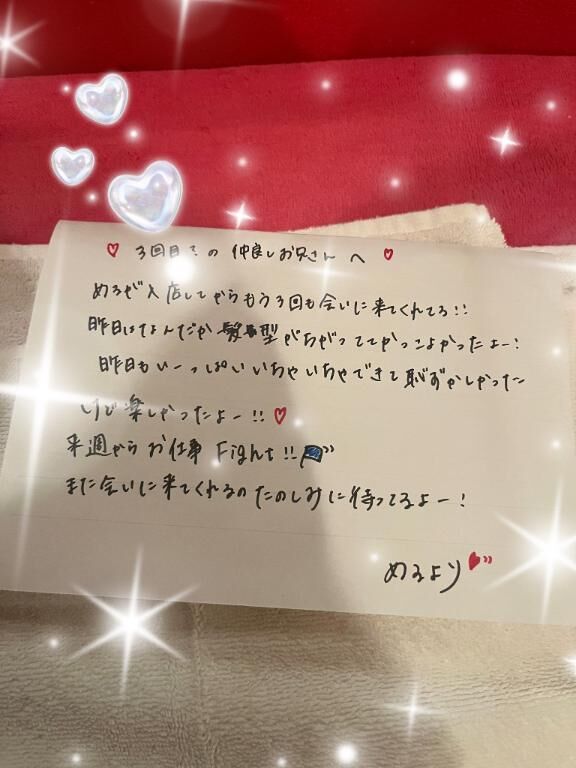 ♡ 3回目ての仲良しお兄さんへ ♡
めるが入店してからもう3回も会いに来てくれてる!!
昨日はなんだか髪型がちがっててかっこよかったよー!
昨日もいーっぱいいちゃいちゃできて恥ずかしかった〜
けど楽しかったよー!!♡
来週からお仕事 Fight!!
また会いに来てくれるのたのしみに待ってるよー!
めるより